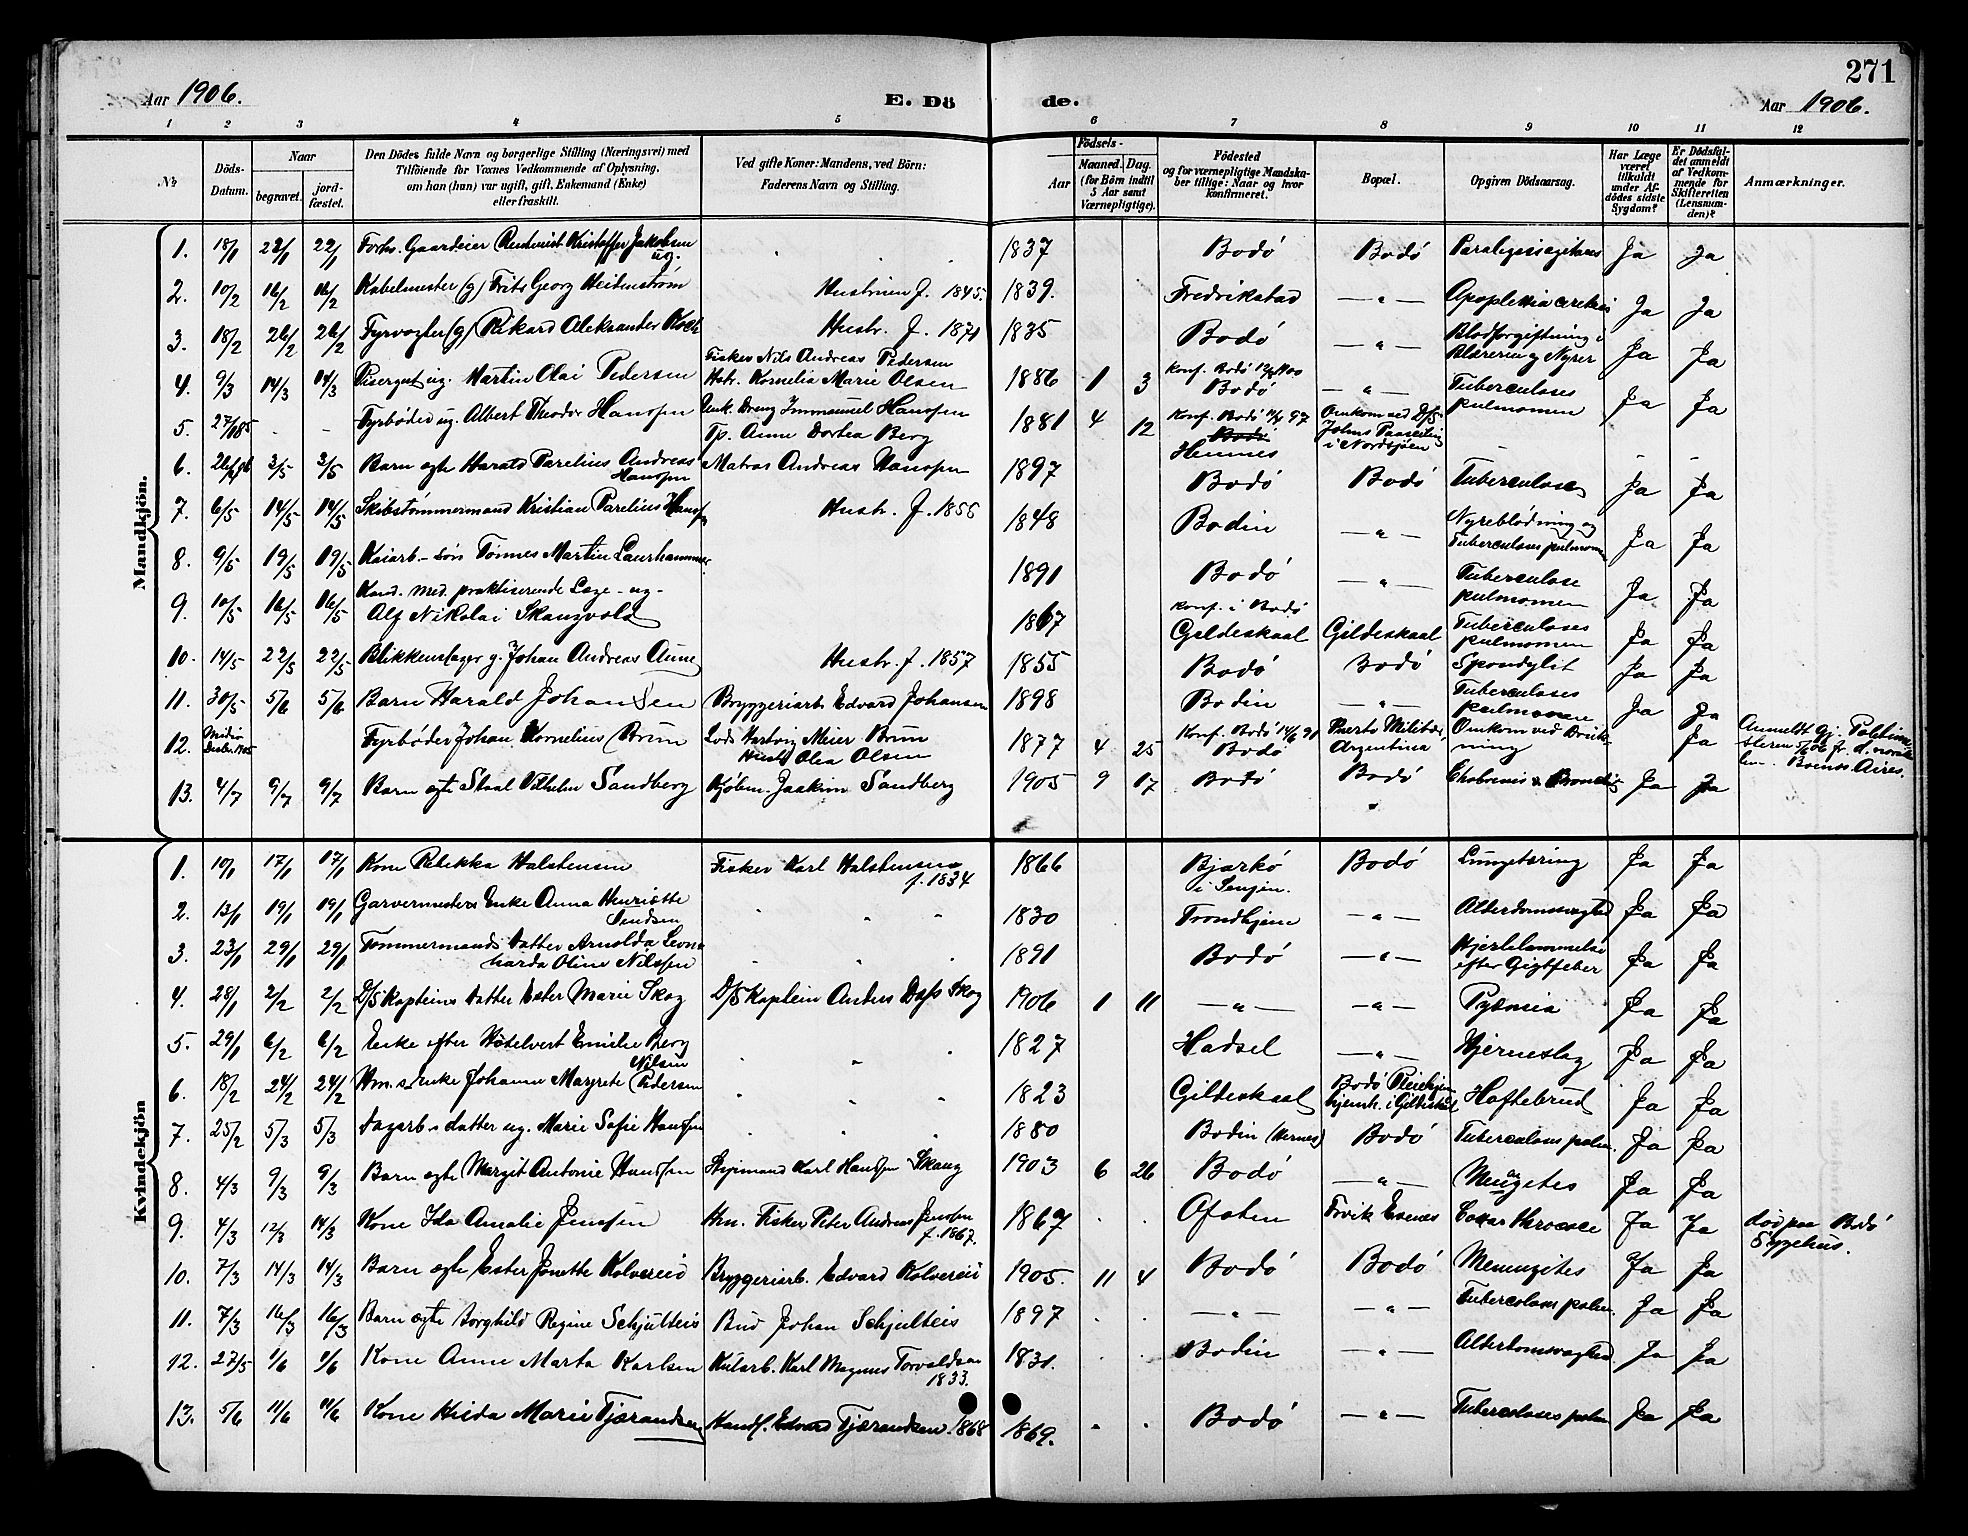 271
Aar 1906.
E. Dö de.
Aar 1906.
1 2 3 4 5 6 7 8 9 10 11 12
No.
Döds-Datum.
Naar
begravet.
jord-fæstet.
Den Dödes fulde Navn og borgerlige Stilling (Næringsvei) med
Tilföiende for Voxnes Vedkommende af Oplysning,
om han (hun) var ugift, gift, Enkemand (Enke)
eller fraskilt.
Ved gifte Koner: Mandens, ved Börn:
Faderens Navn og Stilling.
Födsels-
Aar
Maaned. Dag.
(for Börn indtil
5 Aar samt
Værnepligtige).
Födested
og for værnepligtige Mandska-
ber tillige: Naar og hvor
konfirmeret.
Bopæl.
Opgiven Dödsaarsag.
Har Læge
været
tilkaldt
under Af-
dödes sidste
Sygdom?
Er Dödsfal-
det anmeldt
af Vedkom-
mende for
Skifteretten
(Lensman-
den)?
Anmærkninger.
Mandkjön.
1. 18/1 22/1 22/1 Forhv. Gaardeier Kristoffer Jakobsen ug. 1837 Bodö Bodö Ja Ja
2. 10/2 16/2 16/2 Kabelmester (g) Frits Georg Heitenstrøm Hustruen f. 1845. 1839. Fredrikstad —"— Apoplexia Ja Ja
3. 18/2 26/2 26/2 Fyrvogter (g) Rikard Aleksander Koch Hustr. f. 1871 1835 Bodö —"— Blodforgiftning i Blæren og Nyrer Ja Ja
4. 9/3 14/3 14/3 Visergut ug. Martin Olai Pedersen Fisker Nils Andreas Pedersen Hstr. Kornelia Marie Olsen 1886 1 3 Konf. Bodö Bodö —"— Tuberculoses pulmonen Ja Ja
5. 27/1 85 - - Fyrbøder ug. Albert Theodor Hanssen Enk. Dreng Immanuel Hanssen Tp. Anne Dortea Berg 1881 4 12 Konf. Bodö 97 Hemnes Omkom ved D/S Johns i Nordsjøen
6. 3/5 3/5 Barn egte Harald Parelius Andreas Hanssen Matros Andreas Hanssen 1897 Bodö Bodö Tuberculose Ja Ja
7. 6/5 14/5 14/5 Skibstømmermand Kristian Parelius Hanssen Hustr. f. 1855 1848 Bodin —"— Nyreblødning og Tuberculoses pulmonen Ja Ja
8. 9/5 19/5 19/5 Kaiarb. søn Tønnes Martin Laurhammer 1891 Bodö —"— Tuberculose pulmonen Ja Ja
9. 10/5 16/5 16/5 Kand. med. praktiserende Læge - ug - Alf Nikolai Skaugvold 1867 konf. i Bodö Gildeskaal Gildeskaal Tuberculoses pulmonen Ja Ja
10. 14/5 22/5 22/5 Blikkenslager g. Johan Andreas Aune Hustr. f. 1857 1855 Bodö Bodö Spondylit Ja Ja
11. 30/5 5/6 5/6 Barn Harald Johansen Bryggeriarb. Edvard Johansen 1898 Bodin —"— Tuberculoses pulmonen Ja Ja
12. Midio Desbr. 1905 Fyrbøder Johan Kornelius Brun Lods Hartvig Meier Brun Hustr. Olea Olsen 1877 4 25 Konf. Bodö Bodö Puerto Militar Argentina Omkom ved Drukning Ja Anmeldt gj. Politimesteren fr. d. norske Buenos Aires.
13. 4/7 9/7 9/7 Barn egte Staal Vilhelm Sandberg Kjøbm. Joakim Sandberg 1905 9 17 Bodö Bodö Ja Ja
Kvindekjön
1. 10/1 17/1 17/1 Kone Rebekka Halstensen Fisker Karl Halstensen f. 1834 1866 Bjarkö i Senjen. Bodö Lungetæring Ja Ja
2. 13/1 19/1 19/1 Garvermesters Enke Anna Henriette 1830 Trondhjem —"— Alderdomssvaghed Ja Ja
3. 23/1 29/1 29/1 Tømmermands datter Arnolda Leonharda Oline Nilssen 1891 Bodö —"— Hjertelammelse efter Gigtfeber Ja Ja
4. 28/1 2/2 2/2 D/S Kapteins datter Ester Marie Skog D/S Kaptein Anders Dass Skog 1906 1 11 —"— —"— Pyæmia Ja Ja
5. 29/1 6/2 6/2 Enke efter Hotelvert Emilie Berg 1827 Hadsel —"— Hjerneslag Ja Ja
6. 18/2 24/2 24/2 Hm.s enke Johanna Margrete Nilsen Pedersen 1823 Gildeskaal Bodö Pleiehjem hjemh. i Gildeskaal Hoftebrud Ja Ja
7. 25/2 5/3 5/3 Dagarb.s datter ug. Marie Sofie Hanssen 1880 Bodin (Hernes) Bodö Tuberculoses pulm. Ja Ja
8. 4/3 9/3 9/3 Barn egte Margit Antonie Hanssen Styrmand Karl Hanssen Skaug 1903 6 26 Bodö —"— Meningites Ja Ja
9. 4/3 12/3 14/3 Kone Ida Amalie Jenssen Hm. Fisker Peter Andreas Jenssen f. 1867. 1867 Ofoten Ja Ja død paa Bodö Sygehus.
10. 7/3 14/3 14/3 Barn egte Ester Jonette Kolvereid Bryggeriarb. Edvard Kolvereid 1905. 11 4 Bodö Bodö Meningites Ja Ja
11. 7/3 16/3 16/3 Barn egte Borghild Regine Schjulteis Bud Johan Schjulteis 1897 —"— —"— Tuberculoses pulm. Ja Ja
12. 27/5 1/6 1/6 Kone Anne Marta Karlsen Kularb. Karl Magnus Torvaldsen 1833. 1831. Bodin —"— Alderdomssvaghed Ja Ja
13. 5/6 11/6 11/6 Kone Hilda Marie Tjærandsen Handl. Edvard Tjærandsen 1868 1869. Bodö —"— Tuberculoses pulm Ja Ja